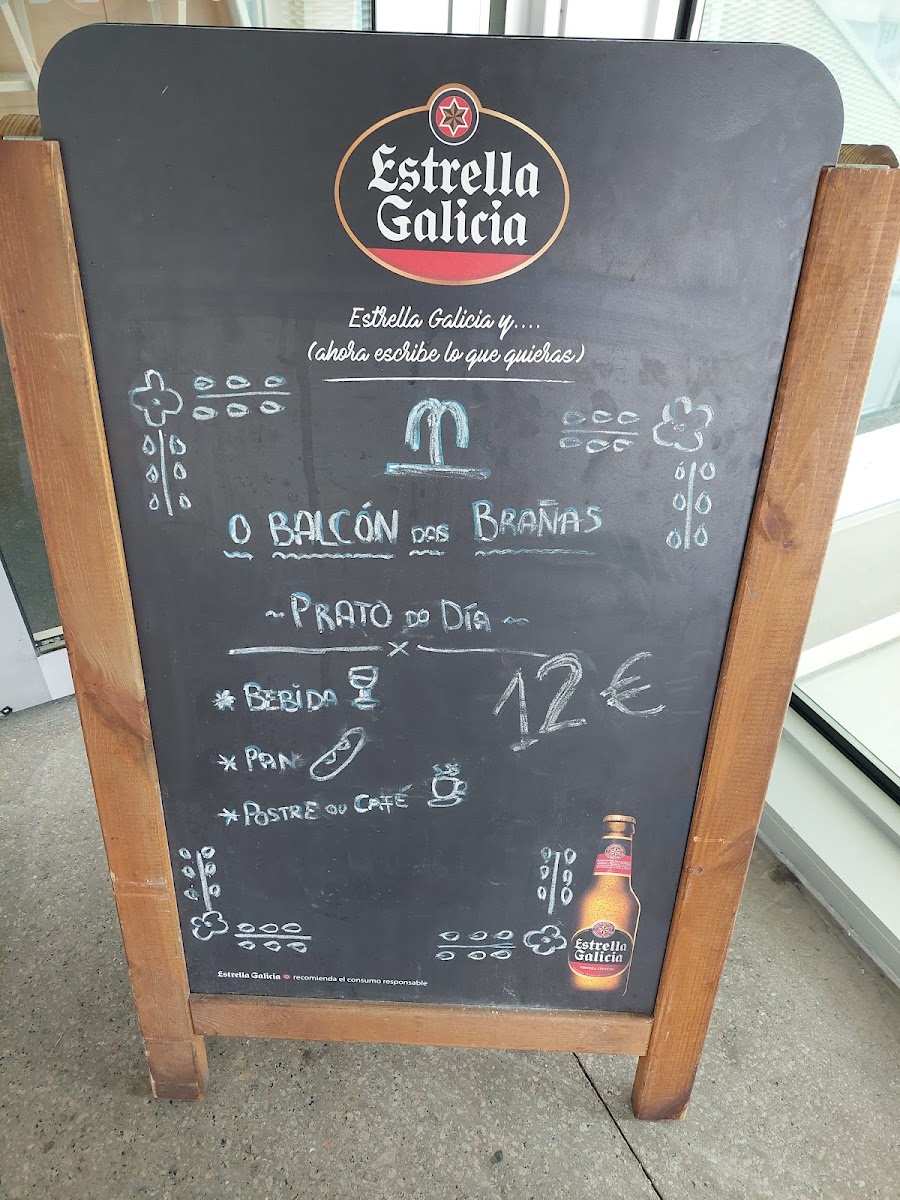 Estrella
Galicia
Estrella Galicia y....
(ahora escribe lo que quieras)
O BALCÓN DAS BRAÑAS
~PRATO DO DÍA~
* BEBIDA
12€
* PAN
* POSTRE OU CAFÉ
Estrella
Galicia
Estrella Galicia recomienda el consumo responsable